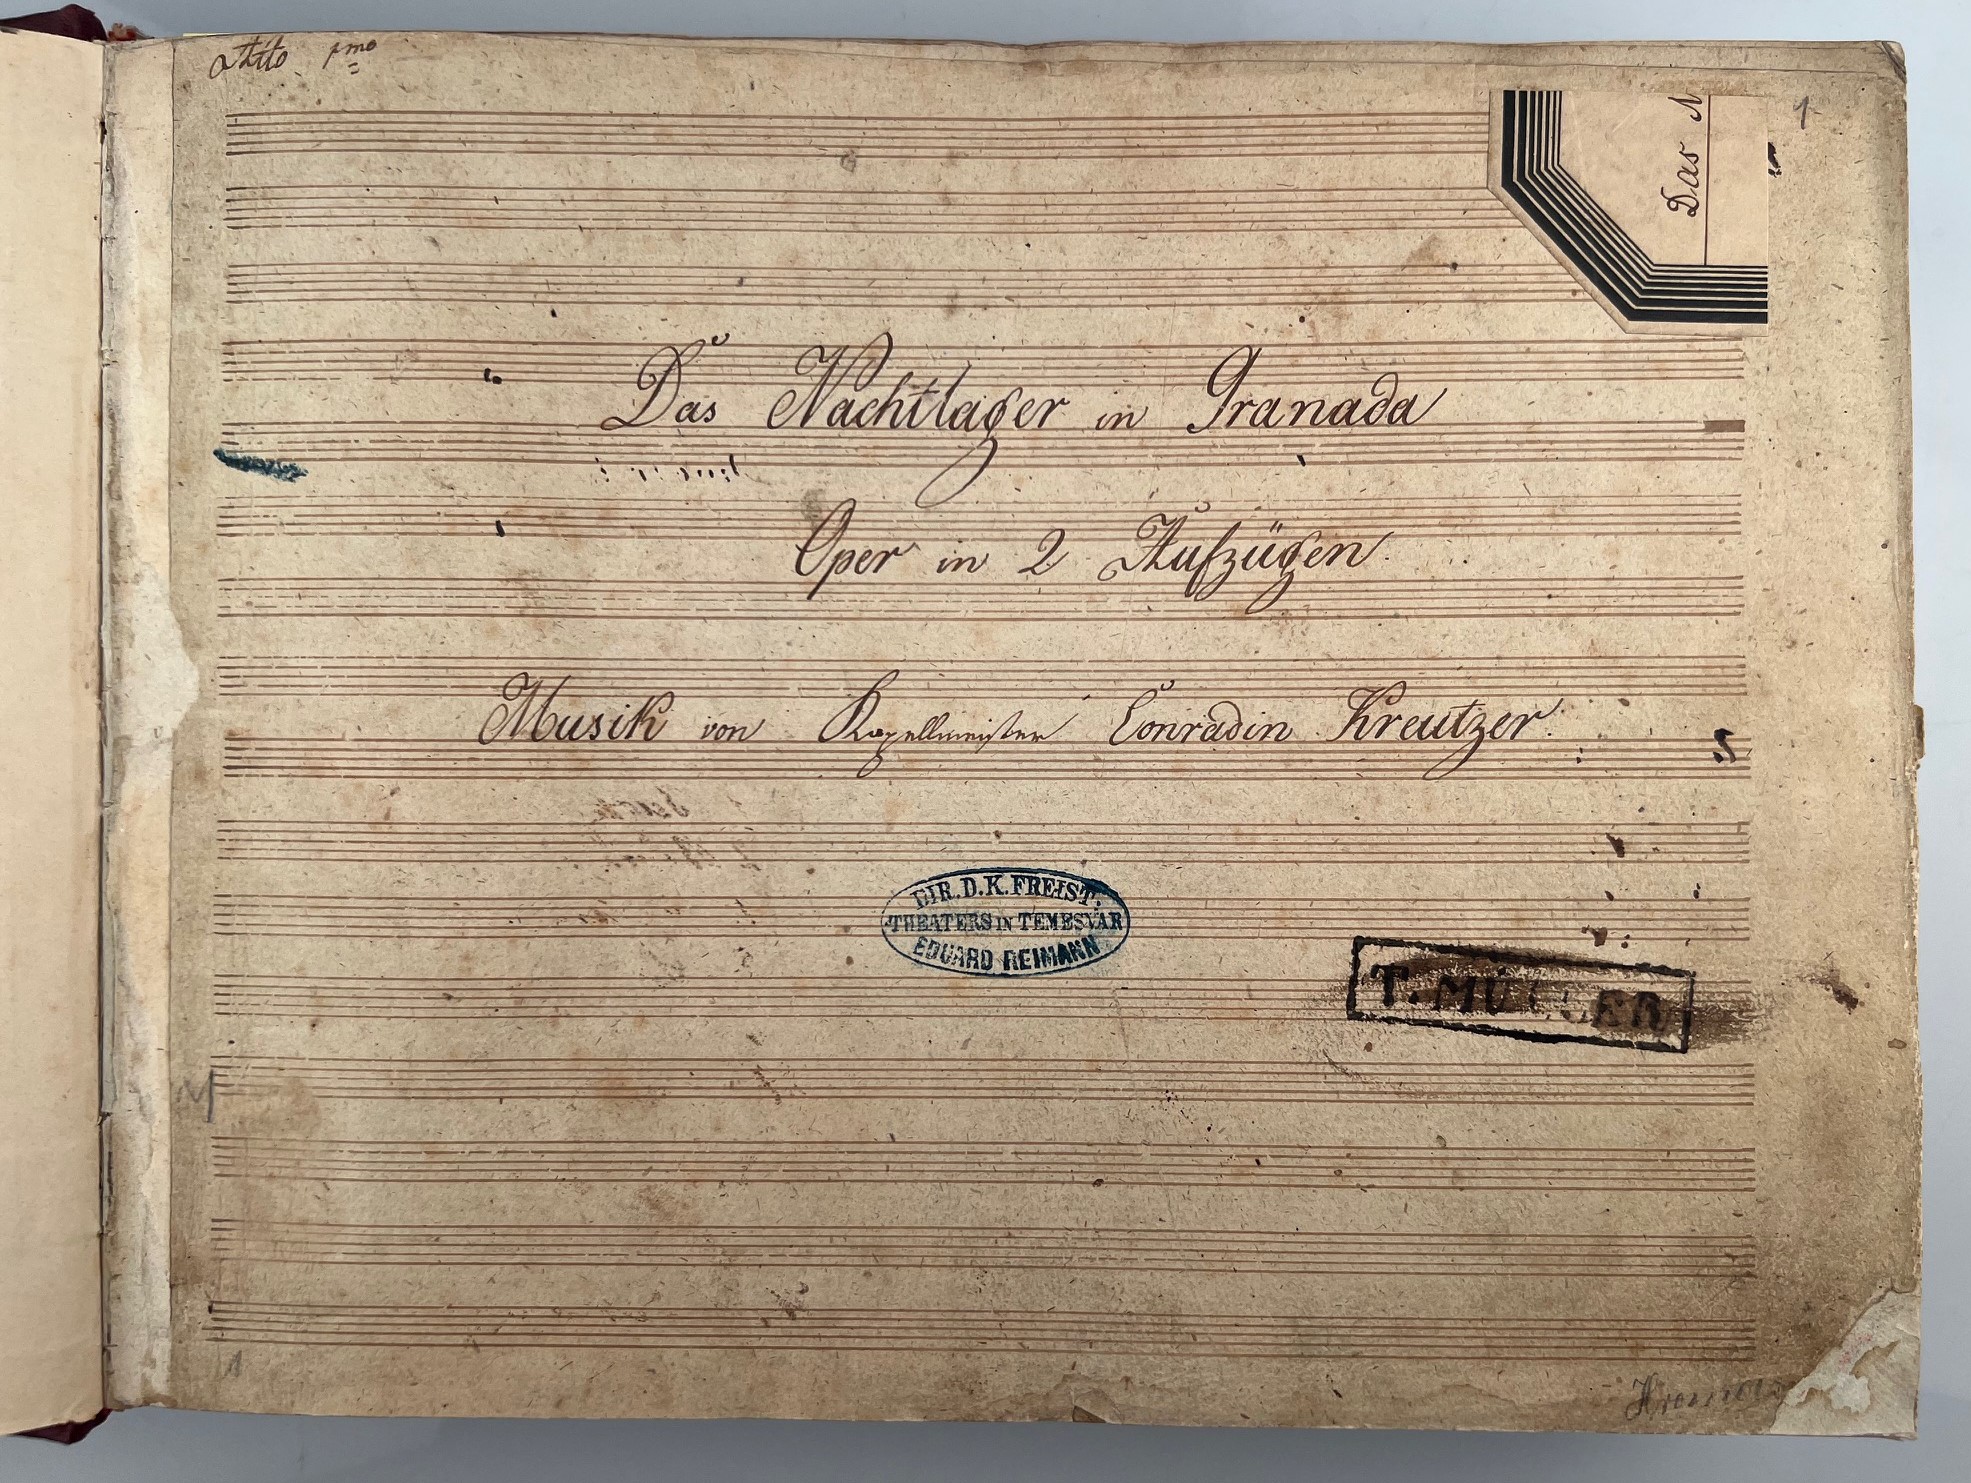 Atto 1mo
1
Das N
Das Nachtlager in Granada
Oper in 2 Aufzügen.
Musik von Kapellmeister Conradin Kreutzer.
DIR. D. K. FREIST.
THEATERS IN TEMESVAR
EDUARD REIMANN
T. MÜLLER
1